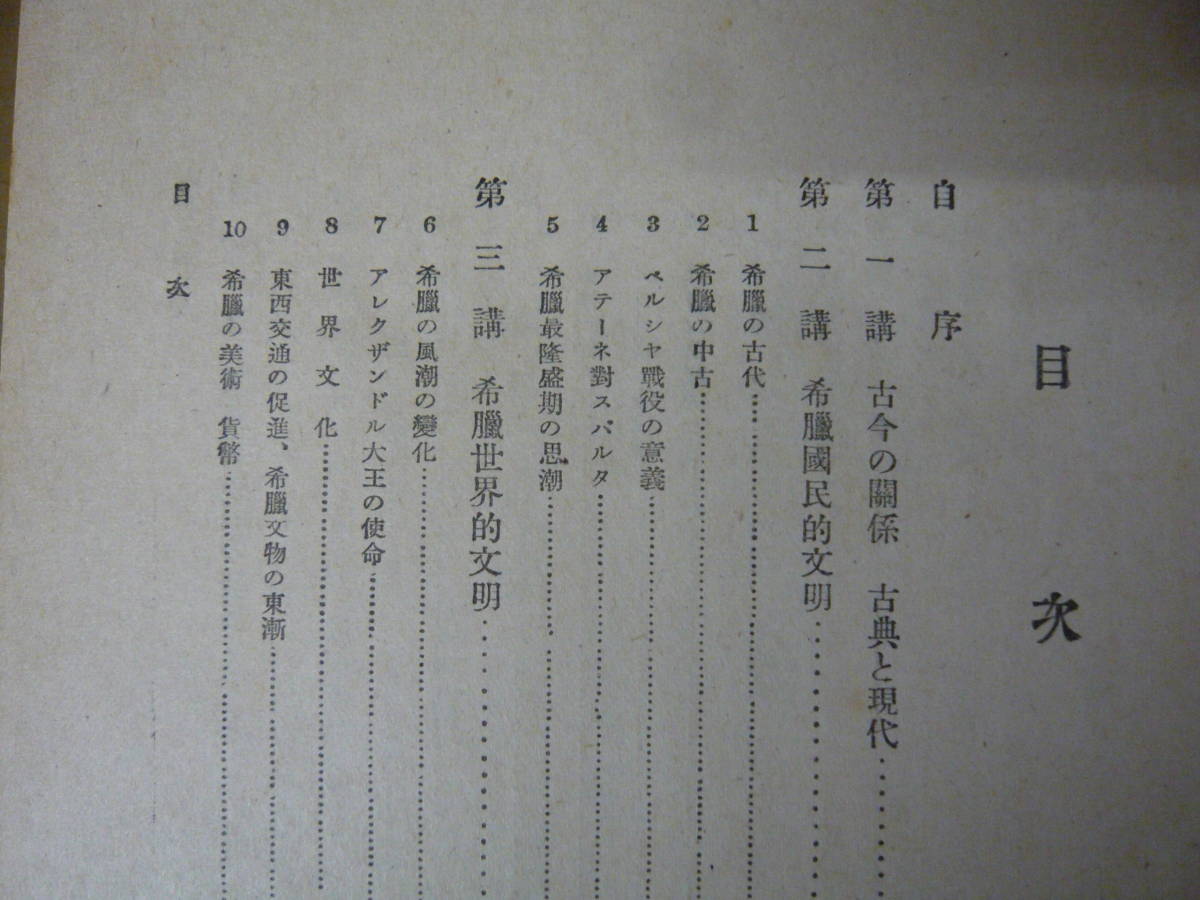 目次
自序
第一講 古今の關係 古典と現代
第二講 希臘國民的文明
1 希臘の古代
2 希臘の中古
3 ペルシヤ戰役の意義
4 アテーネ對スパルタ
5 希臘最隆盛期の思潮
第三講 希臘世界的文明
6 希臘の風潮の變化
7 アレクザンドル大王の使命
8 世界文化
9 東西交通の促進、希臘文物の東漸
10 希臘の美術 貨幣
目次